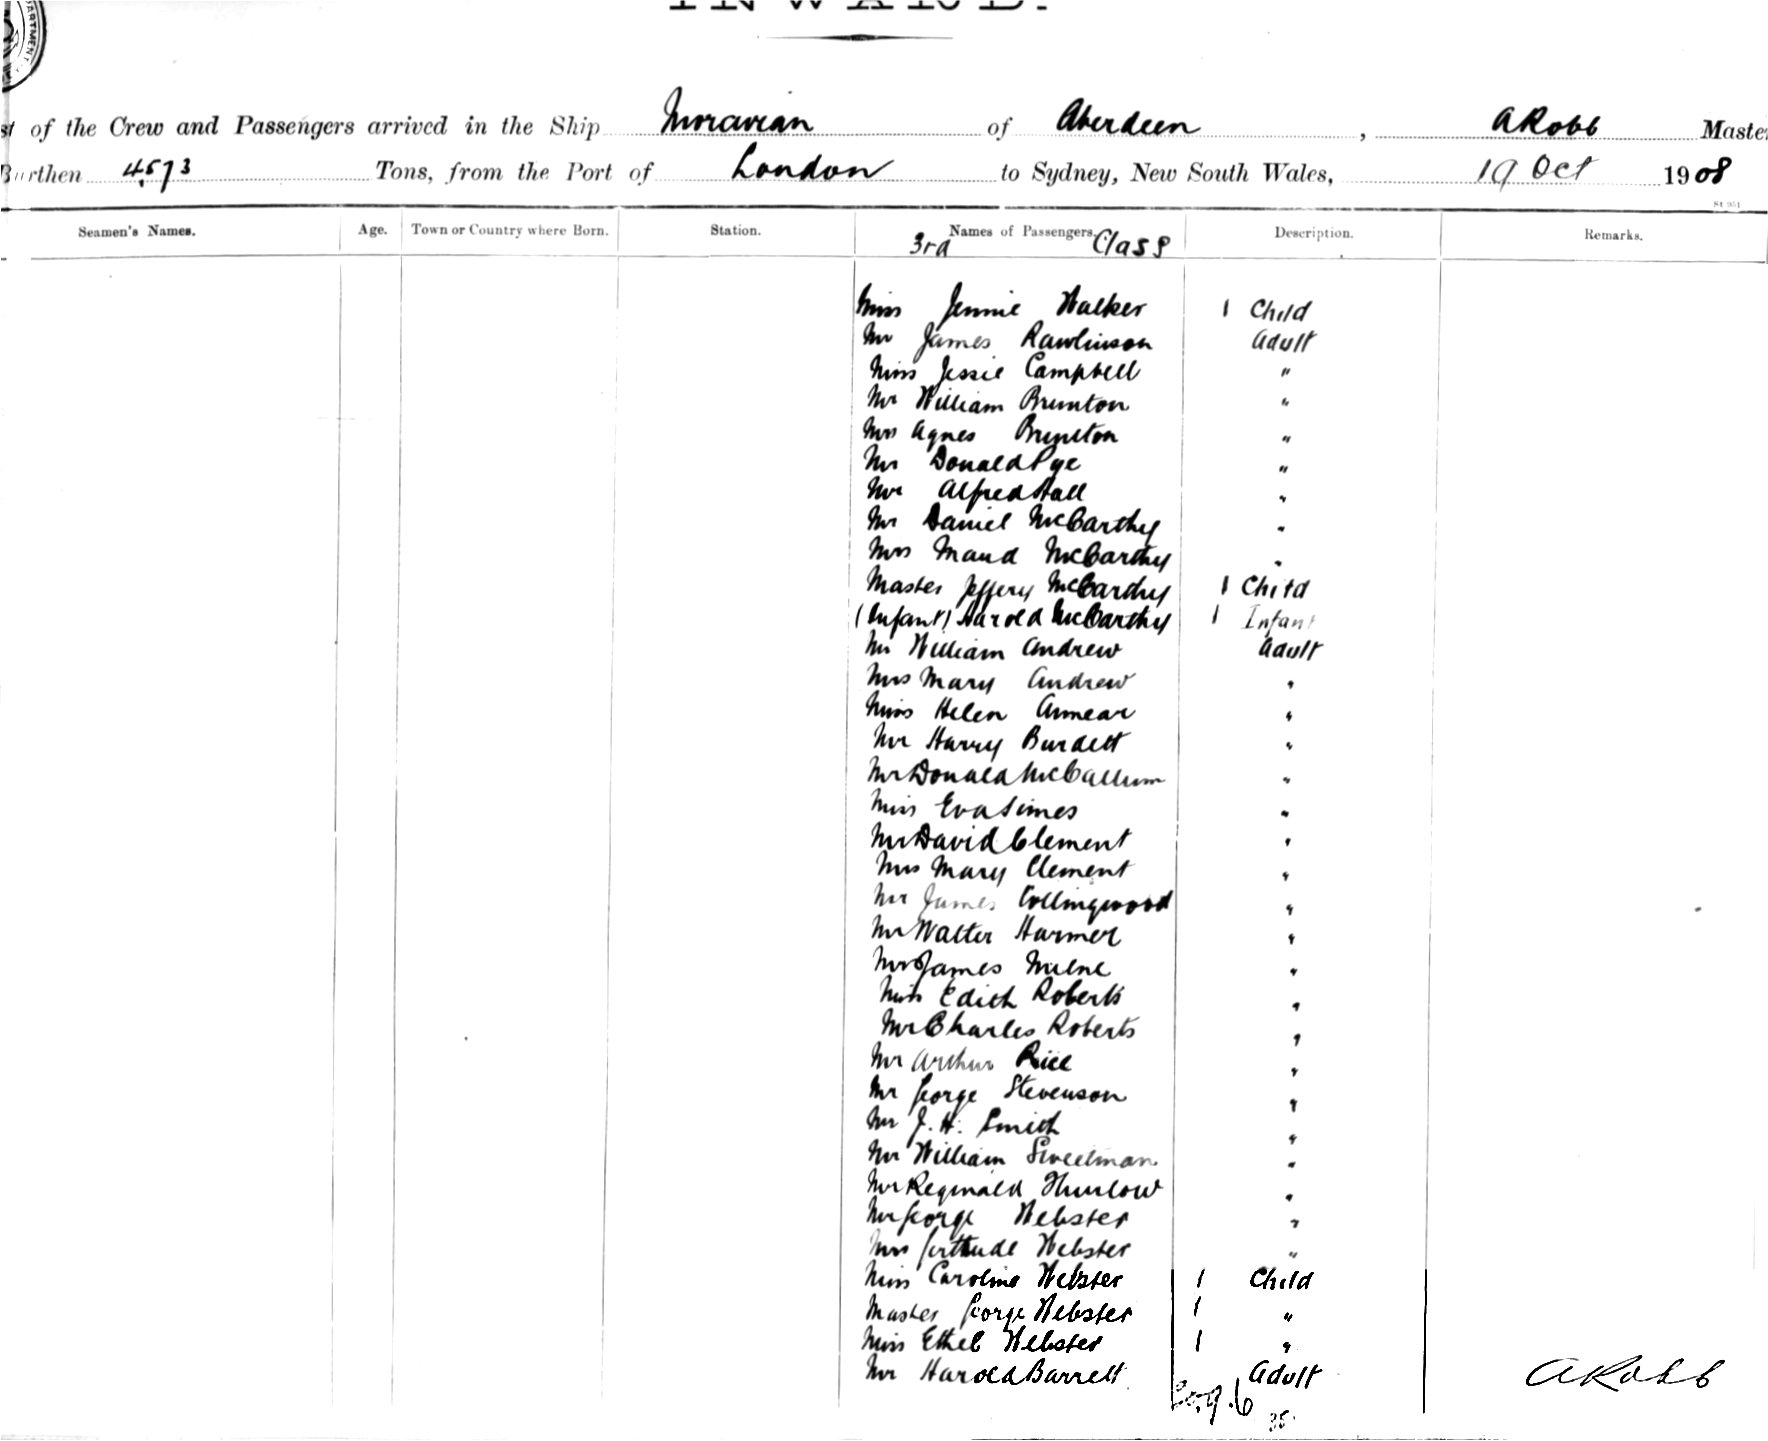 INWARD.
DEPARTMENT
of the Crew and Passengers arrived in the Ship Moravian of Aberdeen, A Robb Master
Burthen 4573 Tons, from the Port of London to Sydney, New South Wales, 19 Oct 1908
Seamen's Names. Age. Town or Country where Born. Station. Names of Passengers. Description. Remarks.
3rd Class
Miss Jennie Walker 1 Child
Mr James Rawlinson Adult
Miss Jessie Campbell "
Mr William Brunton "
Mrs Agnes Brunton "
Mr Donald Pye "
Mr Alfred Hall "
Mr Daniel McCarthy "
Mrs Maud McCarthy "
Master Jeffery McCarthy 1 Child
(Infant) Harold McCarthy 1 Infant
Mr William Andrew Adult
Mrs Mary Andrew "
Miss Helen Annear "
Mr Harry Burdett "
Mr Donald McCallum "
Miss Eva Simes "
Mr David Clement "
Mrs Mary Clement "
Mr James Collingwood "
Mr Walter Harmer "
Mr James Milne "
Miss Edith Roberts "
Mr Charles Roberts "
Mr Arthur Rice "
Mr George Stevenson "
Mr J. H. Smith "
Mr William Sweetman "
Mr Reginald Thurlow "
Mr George Webster "
Mrs Gertrude Webster "
Miss Caroline Webster 1 Child
Master George Webster 1 "
Miss Ethel Webster 1 "
Mr Harold Barrett Adult
A Robb
35